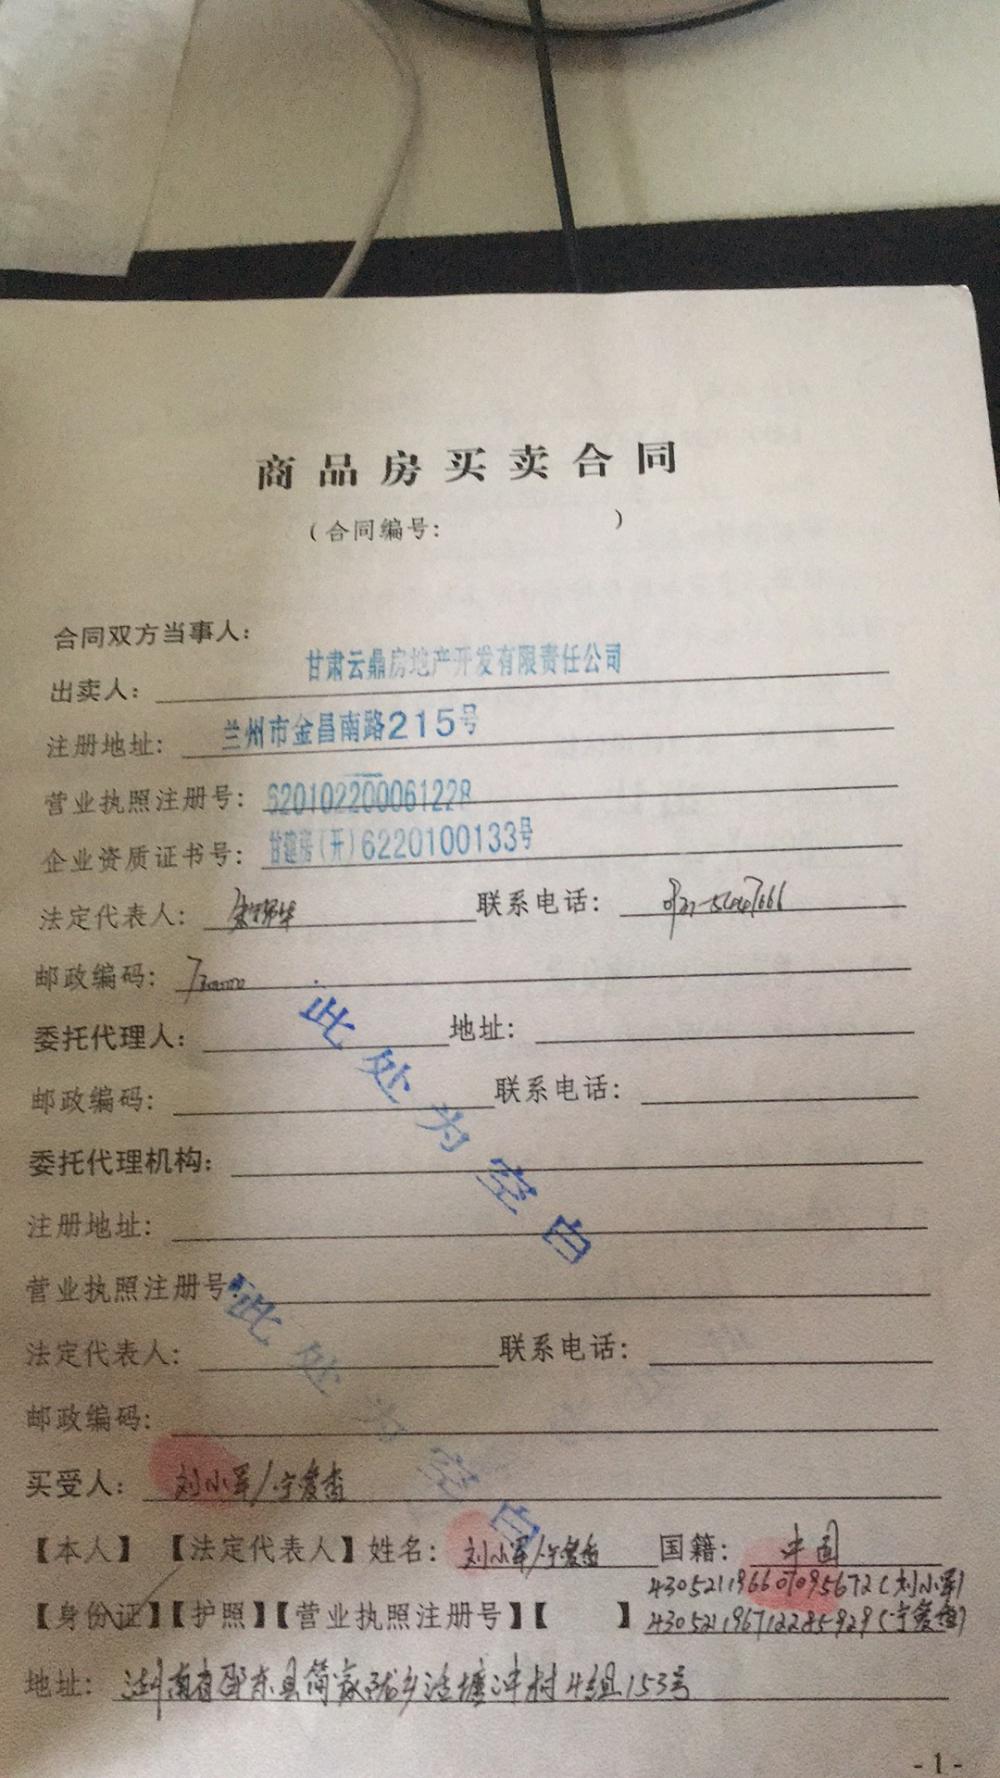 商品房买卖合同
（合同编号：　　　　　　）
合同双方当事人：
出卖人：甘肃云鼎房地产开发有限责任公司
注册地址：兰州市金昌南路215号
营业执照注册号：620102200061228
企业资质证书号：甘建房（开）6220100133号
法定代表人：　　　联系电话：
邮政编码：730000
委托代理人：　　　地址：
邮政编码：　　　联系电话：
委托代理机构：
注册地址：
营业执照注册号：
法定代表人：　　　联系电话：
邮政编码：
此处为空白
此处为空白
买受人：刘小军/宁爱香
【本人】【法定代表人】姓名：刘小军/宁爱香　国籍：中国
430521196607095672（刘小军）
【身份证】【护照】【营业执照注册号】【　　】430521196712285929（宁爱香）
地址：湖南省邵东县简家陇乡 塘冲村4组153号
-1-